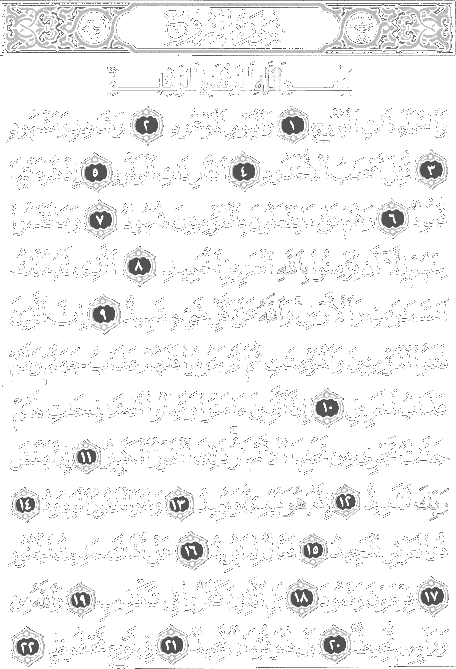 سُورَةُ البُرُوجِ
بِسْمِ ٱللَّهِ ٱلرَّحْمَٰنِ ٱلرَّحِيمِ
وَٱلسَّمَآءِ ذَاتِ ٱلْبُرُوجِ ١ وَٱلْيَوْمِ ٱلْمَوْعُودِ ٢ وَشَاهِدٍ وَمَشْهُودٍ
٣ قُتِلَ أَصْحَٰبُ ٱلْأُخْدُودِ ٤ ٱلنَّارِ ذَاتِ ٱلْوَقُودِ ٥ إِذْ هُمْ عَلَيْهَا
قُعُودٌ ٦ وَهُمْ عَلَىٰ مَا يَفْعَلُونَ بِٱلْمُؤْمِنِينَ شُهُودٌ ٧ وَمَا نَقَمُوا۟
مِنْهُمْ إِلَّآ أَن يُؤْمِنُوا۟ بِٱللَّهِ ٱلْعَزِيزِ ٱلْحَمِيدِ ٨ ٱلَّذِى لَهُۥ مُلْكُ
ٱلسَّمَٰوَٰتِ وَٱلْأَرْضِ وَٱللَّهُ عَلَىٰ كُلِّ شَىْءٍ شَهِيدٌ ٩ إِنَّ ٱلَّذِينَ
فَتَنُوا۟ ٱلْمُؤْمِنِينَ وَٱلْمُؤْمِنَٰتِ ثُمَّ لَمْ يَتُوبُوا۟ فَلَهُمْ عَذَابُ جَهَنَّمَ وَلَهُمْ
عَذَابُ ٱلْحَرِيقِ ١٠ إِنَّ ٱلَّذِينَ ءَامَنُوا۟ وَعَمِلُوا۟ ٱلصَّٰلِحَٰتِ لَهُمْ
جَنَّٰتٌ تَجْرِى مِن تَحْتِهَا ٱلْأَنْهَٰرُ ذَٰلِكَ ٱلْفَوْزُ ٱلْكَبِيرُ ١١ إِنَّ بَطْشَ
رَبِّكَ لَشَدِيدٌ ١٢ إِنَّهُۥ هُوَ يُبْدِئُ وَيُعِيدُ ١٣ وَهُوَ ٱلْغَفُورُ ٱلْوَدُودُ ١٤
ذُو ٱلْعَرْشِ ٱلْمَجِيدُ ١٥ فَعَّالٌ لِّمَا يُرِيدُ ١٦ هَلْ أَتَىٰكَ حَدِيثُ ٱلْجُنُودِ
١٧ فِرْعَوْنَ وَثَمُودَ ١٨ بَلِ ٱلَّذِينَ كَفَرُوا۟ فِى تَكْذِيبٍ ١٩ وَٱللَّهُ مِن
وَرَآئِهِم مُّحِيطٌۢ ٢٠ بَلْ هُوَ قُرْءَانٌ مَّجِيدٌ ٢١ فِى لَوْحٍ مَّحْفُوظٍۭ ٢٢